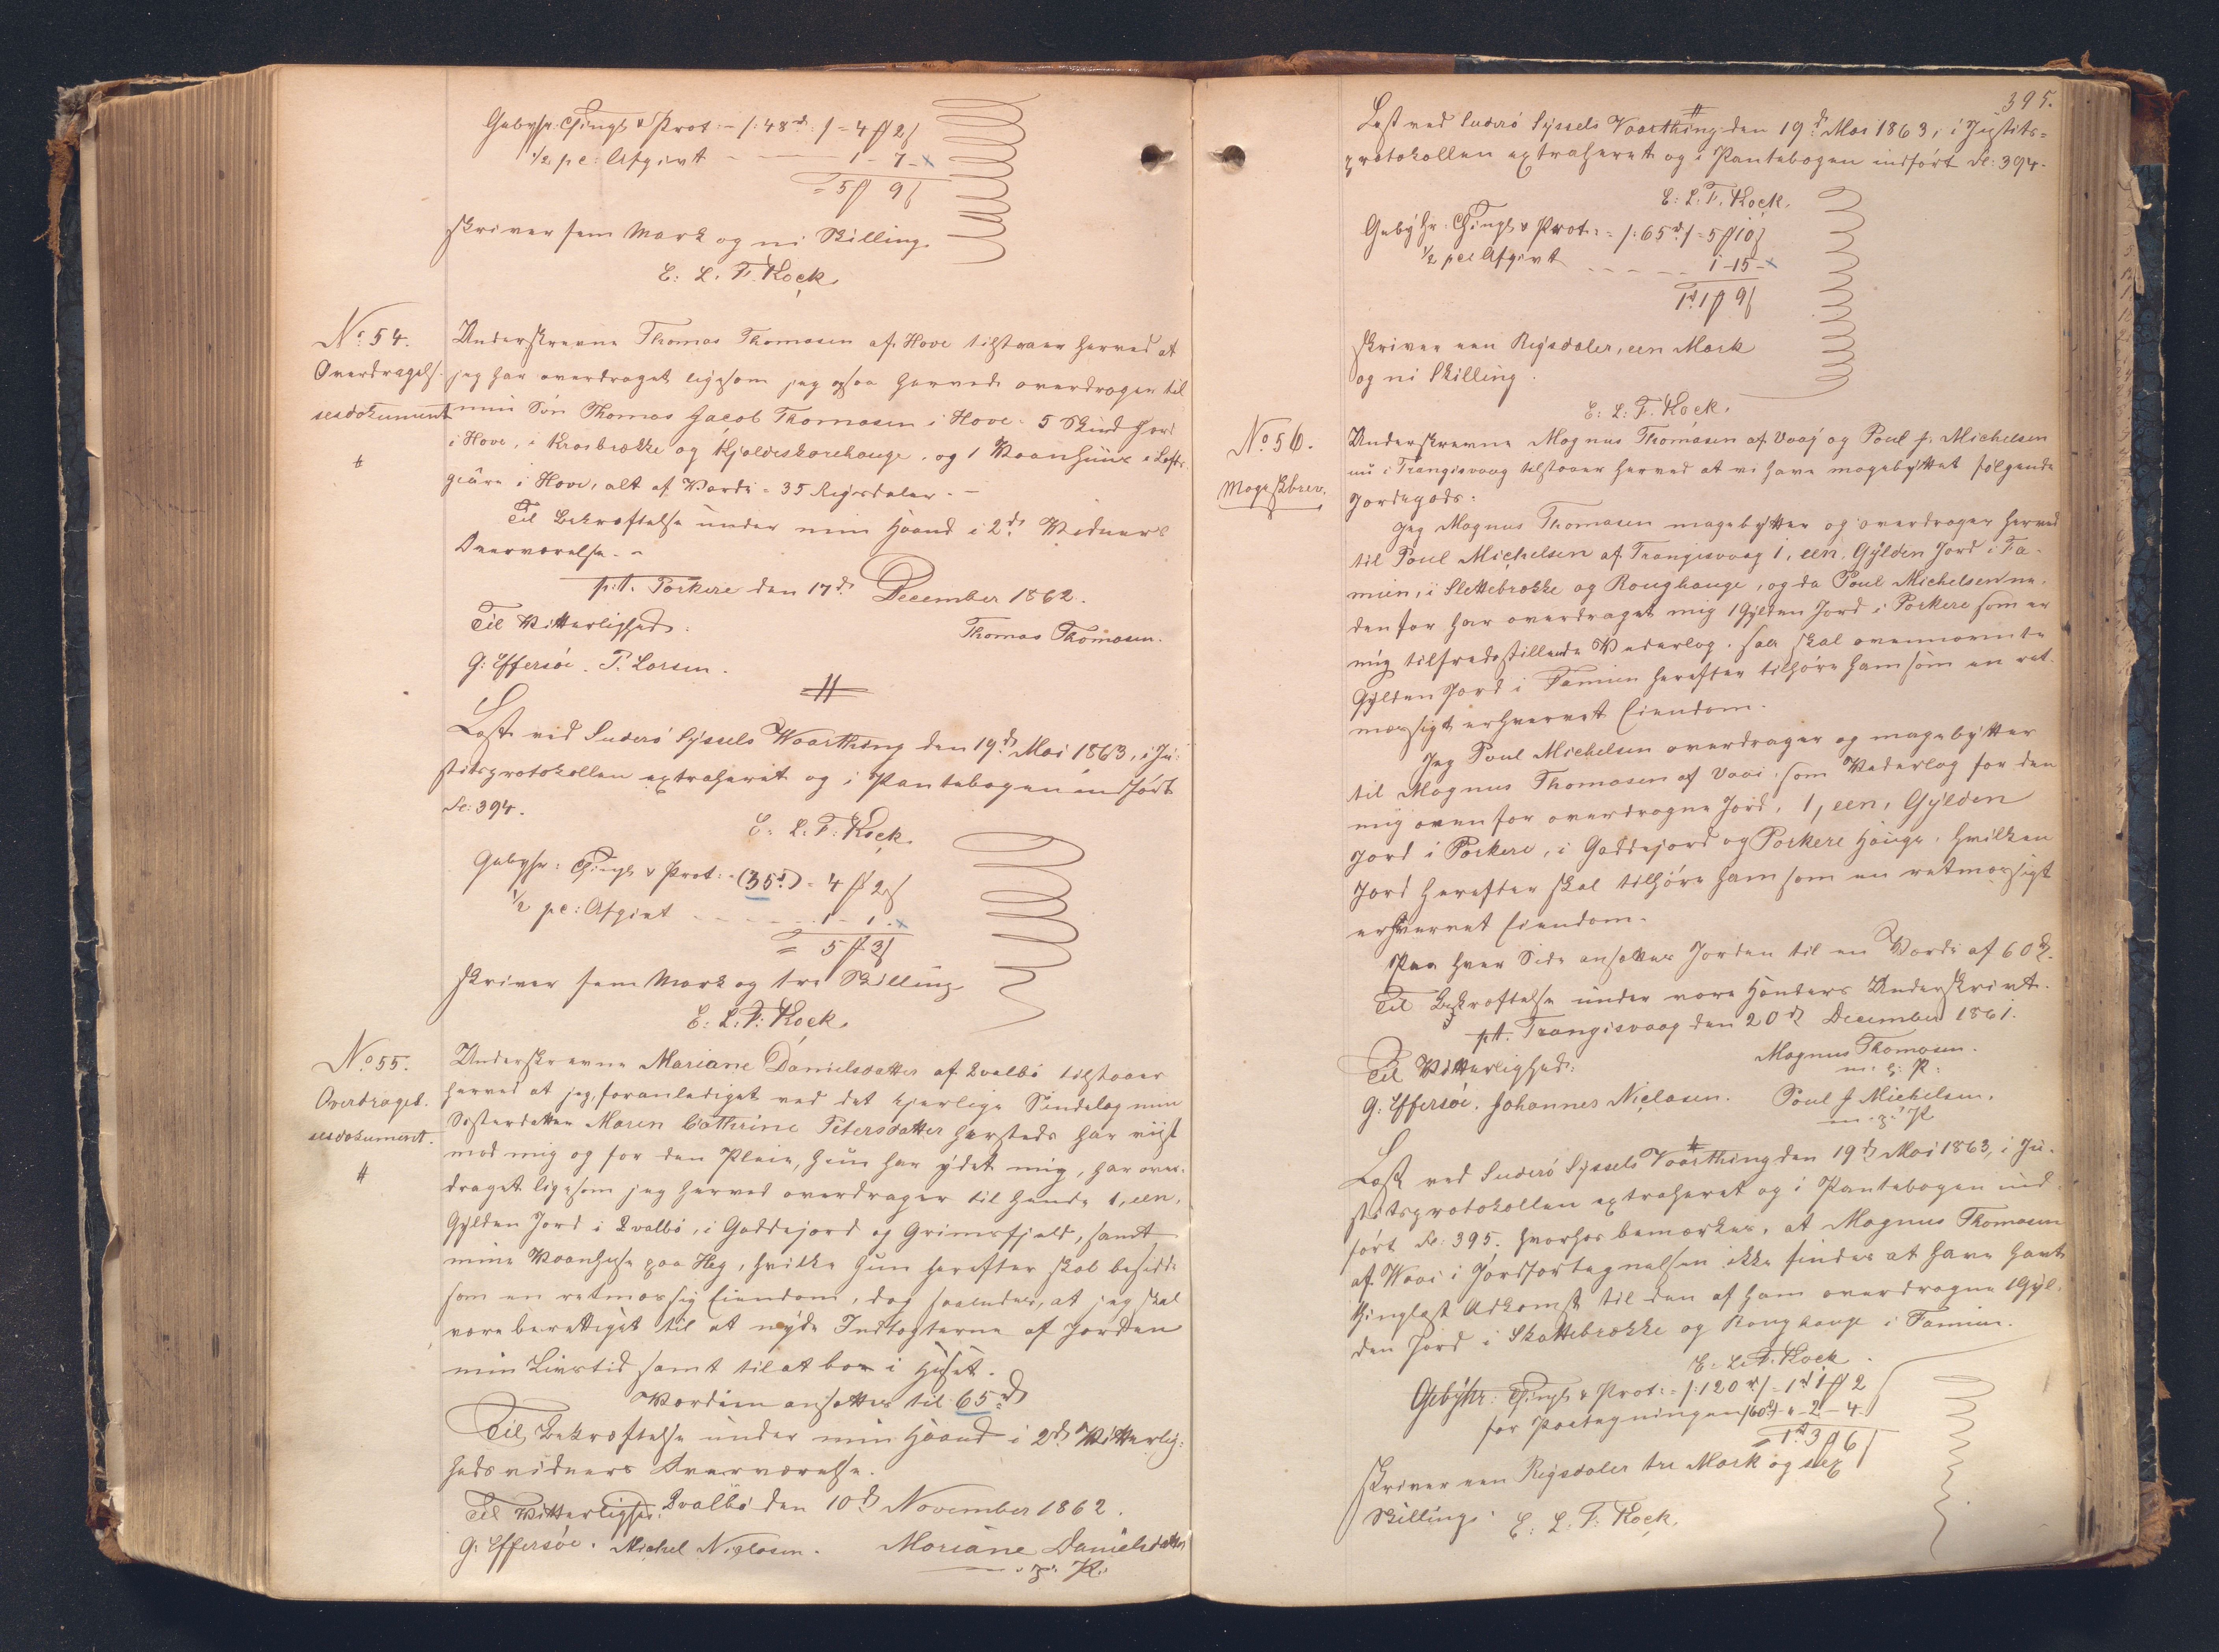 Gebyhr: Thingl. & Prot: - /: 48rd: / = 4 # 2 s
1/2 pc: Afgivt - 1 - 7 - x
= 5 # 9 s
skriver fem Mark og ni Skilling.
E: L. F. Kock.
No: 54.
Overdragelses-
sesdokument
#
Underskrevne Thomas Thomasen af Hove tilstaaer herved at
jeg har overdraget ligesom jeg ogsaa herved overdrager til
min Søn Thomas Jacob Thomasen i Hove. 5 Skind Jord
i Hove, i Krosbrekke og Kjoldeskorehauge, og 1 Vaanhuus i Lofts
giára i Hove, alt af Værdi = 35 Rigsdaler. -
Til Bekræftelse under min Haand i 2de Vidners
Overværelse. -
p: t. Porkere den 17de December 1862.
Til Vitterlighed:
Thomas Thomasen.
G: Effersöe. P. Larsen.
#
Læst ved Suderö Syssels Vaarthing den 19de Mai 1863, i Ju-
stitsprotokollen extraheret og i Pantebogen indført
Fol: 394.
E: L. F: Kock.
Gebyhr: Thingl. & Prot: - (35rd) = 4 # 2 s
1/2 pc: Afgivt - - - - 1 - 1 - x
= 5 # 3 s
skriver fem Mark og tre Skilling
E: L. F: Kock.
No 55.
Overdragel-
sesdokument.
#
Underskrevne Mariane Danielsdatter af Qvalbö tilstaaer
herved at jeg, foranlediget ved det kjerlige Sindelag min
Søsterdatter Maren Cathrine Petersdatter hersteds har viist
mod mig og for den Pleie, hun har ydet mig, har over-
draget ligesom jeg herved overdrager til hende 1, een,
Gylden Jord i Qvalbö, i Gaddejord og Grimsfjeld, samt
mine Vaanhuse paa Heg, hvilke hun herefter skal besidde
som en retmæssig Eiendom, dog saaledes, at jeg skal
være berettiget til at nyde Indtægterne af Jorden
min Livstid samt til at boe i Huset.
Værdien ansættes til 65rd
Til Bekræftelse under min Haand i 2de Vitterlig-
hedsvidners Overværelse.
Qvalbö den 10de November 1862.
Til Vitterlighed:
G: Effersöe. Michel Niclasen. Mariane Danielsdatter
m. p. P.
395.
#
Læst ved Suderö Syssels Vaarthing den 19de Mai 1863, i Justits-
protokollen extraheret og i Pantebogen indført Fol: 394.
E: L. F. Kock.
Gebyhr: Thingl. & Prot: = /: 65rd / = 5 # 10 s
1/2 pct Afgivt - - - - 1 - 15 - x
1rd 1 # 9 s
skriver een Rigsdaler, een Mark
og ni Skilling.
E: L: F. Kock.
No 56.
Mageskbrev.
Underskrevne Magnus Thomasen af Vaag og Poul J. Michelsen
nu i Trangisvaag tilstaaer herved at vi have magebyttet følgende
Jordegods:
Jeg Magnus Thomasen magebytter og overdrager herved
til Poul Michelsen af Trangisvaag 1, een, Gylden Jord i Fa-
mien, i Slettebrække og Roughauge, og da Poul Michelsen ne-
denfor har overdraget mig 1 Gylden Jord i Porkere som er
mig tilfredsstillende Vederlag, saa skal ovennævnte
Gylden Jord i Famien herefter tilhøre ham som en ret-
mæssigt erhvervet Eiendom.
Jeg Poul Michelsen overdrager og magebytter
til Magnus Thomasen af Vaai, som Vederlag for den
mig ovenfor overdragne Jord, 1, een, Gylden
Jord i Porkere, i Gaddejord og Porkere Hauge, hvilken
Jord herefter skal tilhøre ham som en retmæssigt
erhvervet Eiendom.
Paa hver Side ansættes Jorden til en Værdi af 60rd.
Til Bekræftelse under vore Hænders Underskrivt.
pt. Trangisvaag den 20de December 1861.
Til Vitterlighed:
Magnus Thomasen.
m. p: P.
G: Effersöe. Johannes Niclasen. Poul J Michelsen.
m. p. P
#
Læst ved Suderö Syssels Vaarthing den 19de Mai 1863, i Ju-
stitsprotokollen extraheret og i Pantebogen ind-
ført Fol: 395. hvorhos bemærkes, at Magnus Thomasen
af Waai i Jordfortegnelsen ikke findes at have havt
thinglæst Adkomst til den af ham overdragne 1 Gyl-
den Jord i Skattebrække og Roughauge i Famien.
E: L: F. Kock.
Gebyhr: Thingl. & Prot: = /: 120rd / = 1rd 1 # 2
for Paategningen (60rd) - " - 2 - 4
= 1rd 3 # 6 s
skriver een Rigsdaler tre Mark og sex
Skilling. E: L. F: Kock.